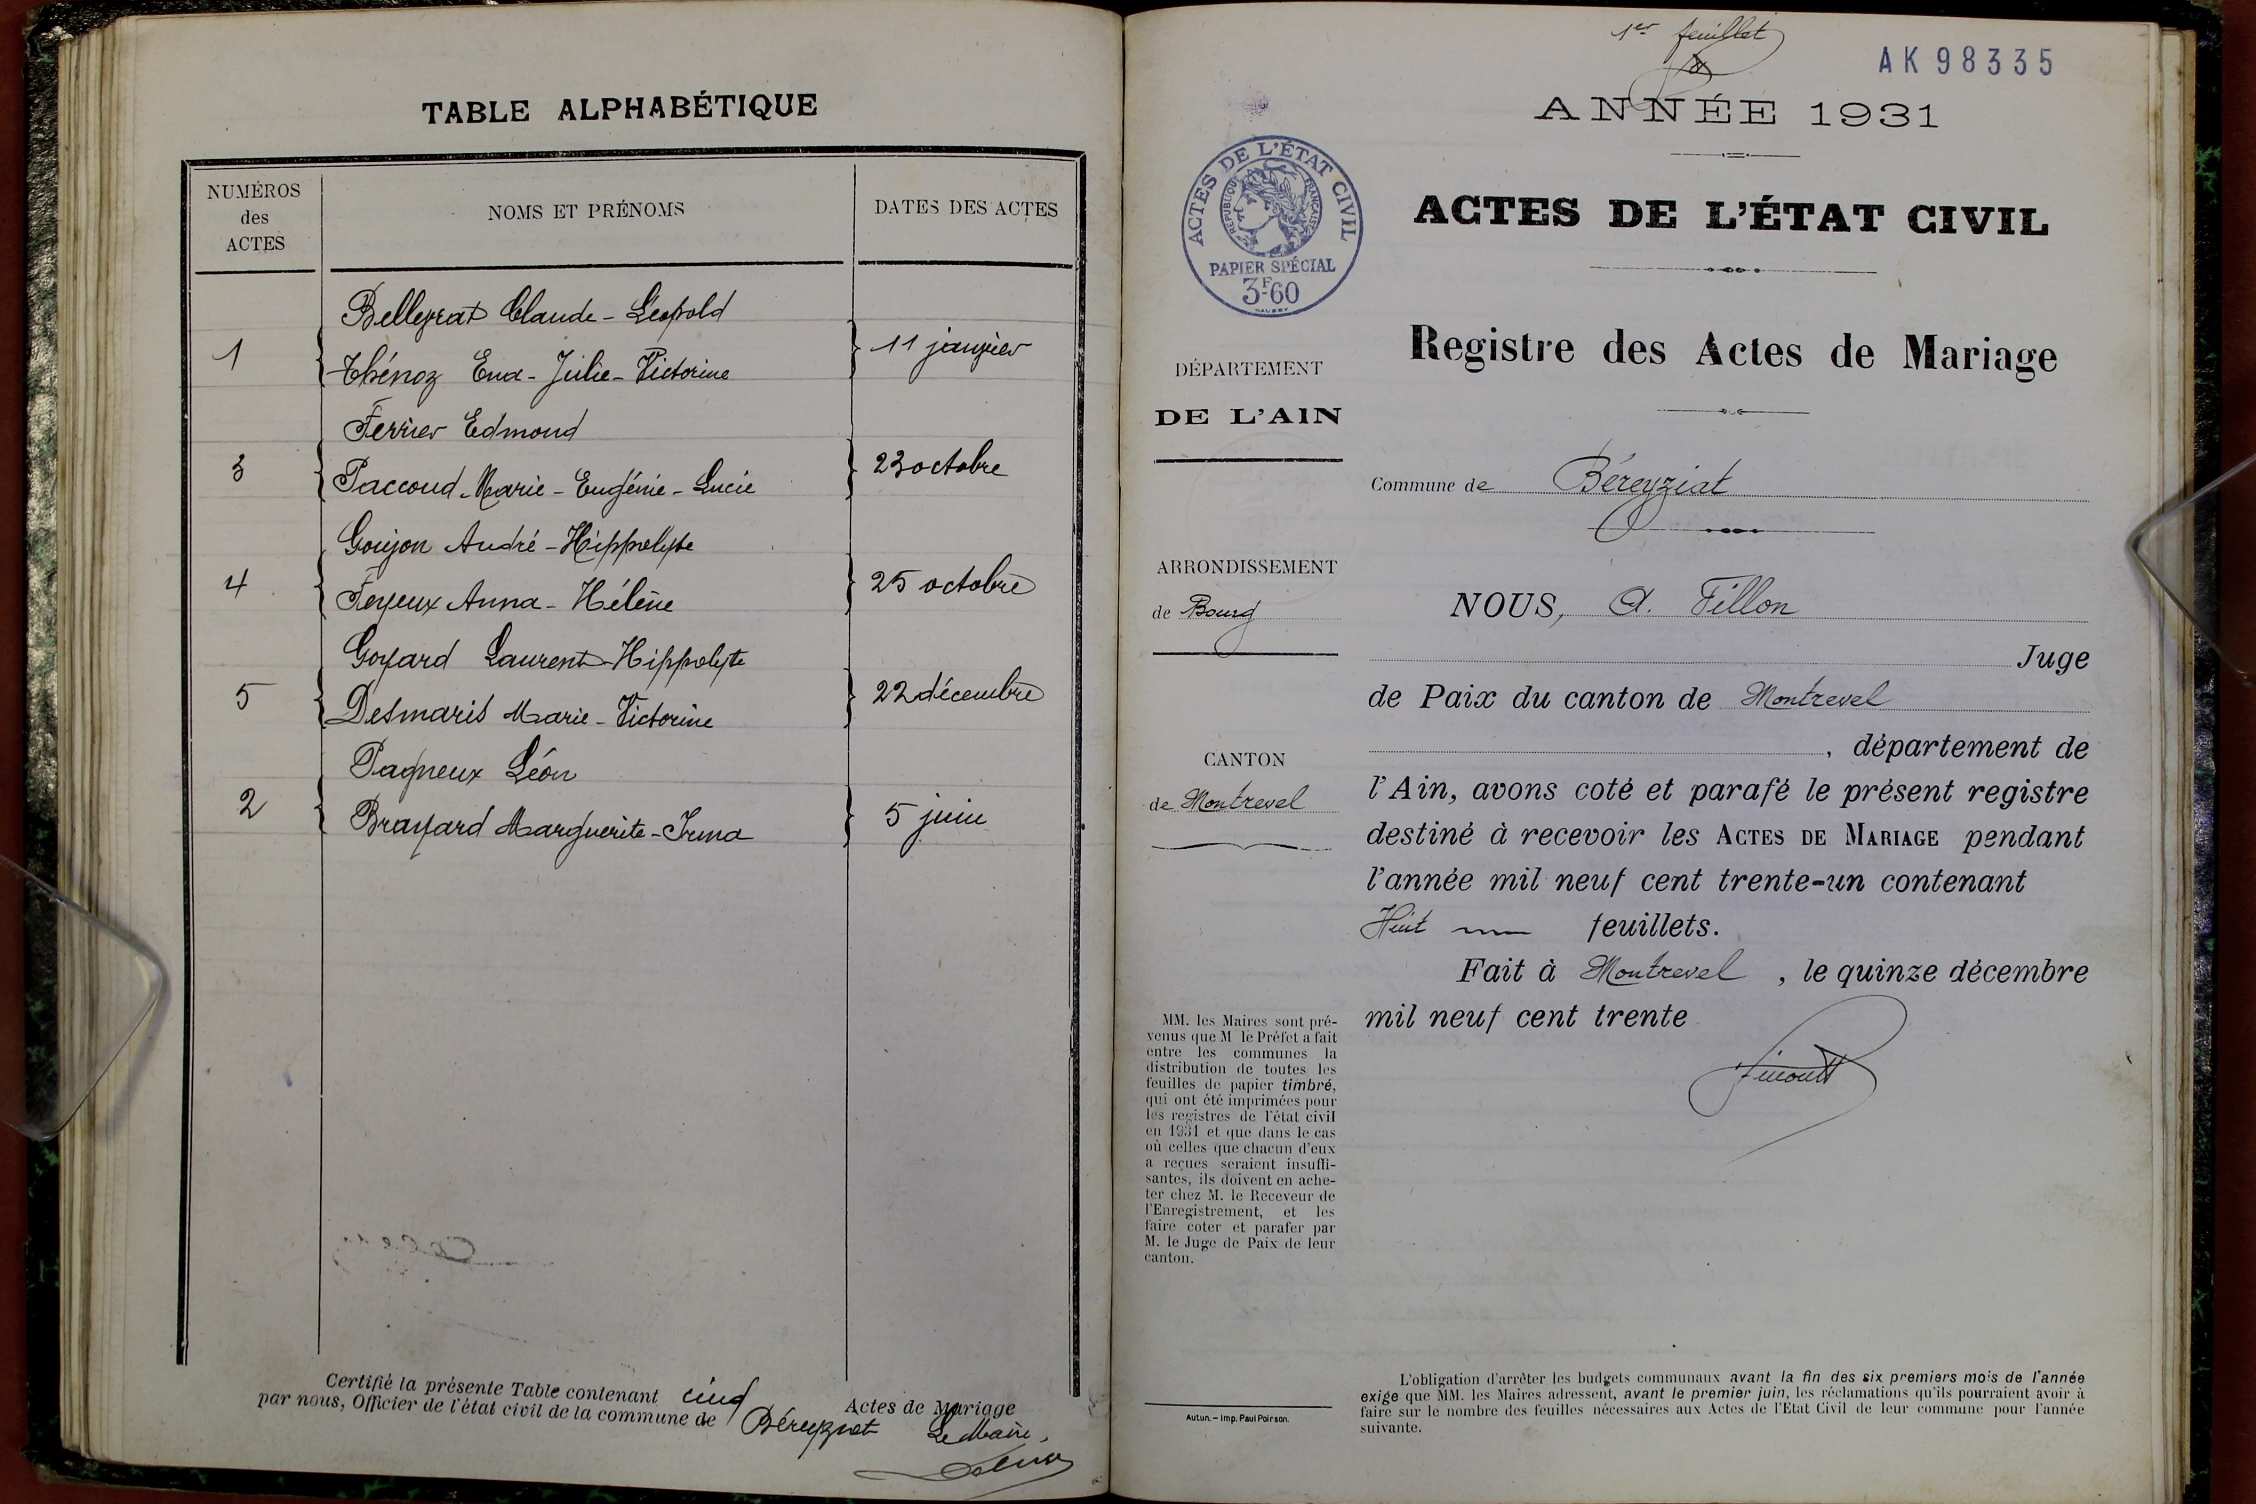 TABLE ALPHABÉTIQUE
NUMÉROS
des
ACTES
NOMS ET PRÉNOMS
DATES DES ACTES
Belleyrat Claude - Léopold
1
Thénoz Ena - Julie - Victorine
11 janvier
Ferrier Edmond
3
Paccoud - Marie - Eugénie - Lucie
23 octobre
Goujon André - Hippolyte
4
Feyeux Anna - Hélène
25 octobre
Goyard Laurent - Hippolyte
5
Desmaris Marie - Victorine
22 décembre
Pagneux Léon
2
Brayard Marguerite - Irma
5 juin
Certifié la présente Table contenant cinq Actes de Mariage
par nous, Officier de l'état civil de la commune de Béreyziat
Le Maire,
1er feuillet
AK 98335
ANNÉE 1931
ACTES DE L'ÉTAT CIVIL
RÉPUBLIQUE FRANÇAISE
PAPIER SPÉCIAL
3F60
ACTES DE L'ÉTAT CIVIL
Registre des Actes de Mariage
DÉPARTEMENT
DE L'AIN
Commune de Béreyziat
ARRONDISSEMENT
de Bourg
CANTON
de Montrevel
NOUS, A. Fillon
Juge
de Paix du canton de Montrevel
, département de
l'Ain, avons coté et parafé le présent registre
destiné à recevoir les ACTES DE MARIAGE pendant
l'année mil neuf cent trente-un contenant
Huit feuillets.
Fait à Montrevel, le quinze décembre
mil neuf cent trente
MM. les Maires sont pré-
venus que M le Préfet a fait
entre les communes la
distribution de toutes les
feuilles de papier timbré,
qui ont été imprimées pour
les registres de l'état civil
en 1931 et que dans le cas
où celles que chacun d'eux
a reçues seraient insuffi-
santes, ils doivent en ache-
ter chez M. le Receveur de
l'Enregistrement, et les
faire coter et parafer par
M. le Juge de Paix de leur
canton.
Autun. – Imp. Paul Poirson.
L'obligation d'arrêter les budgets communaux avant la fin des six premiers mois de l'année
exige que MM. les Maires adressent, avant le premier juin, les réclamations qu'ils pourraient avoir à
faire sur le nombre des feuilles nécessaires aux Actes de l'Etat Civil de leur commune pour l'année
suivante.